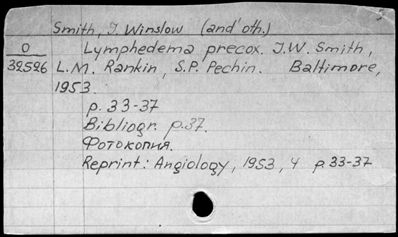 Smith, J Winslow (and oth.)
O Lymphedema precox. J.W. Smith,
32526 L.M. Rankin, S.P. Pechin. Baltimore,
1953.
p. 33-37
Bibliogr. p.37.
Фотокопия.
Reprint: Angiology, 1953, 4 p.33-37